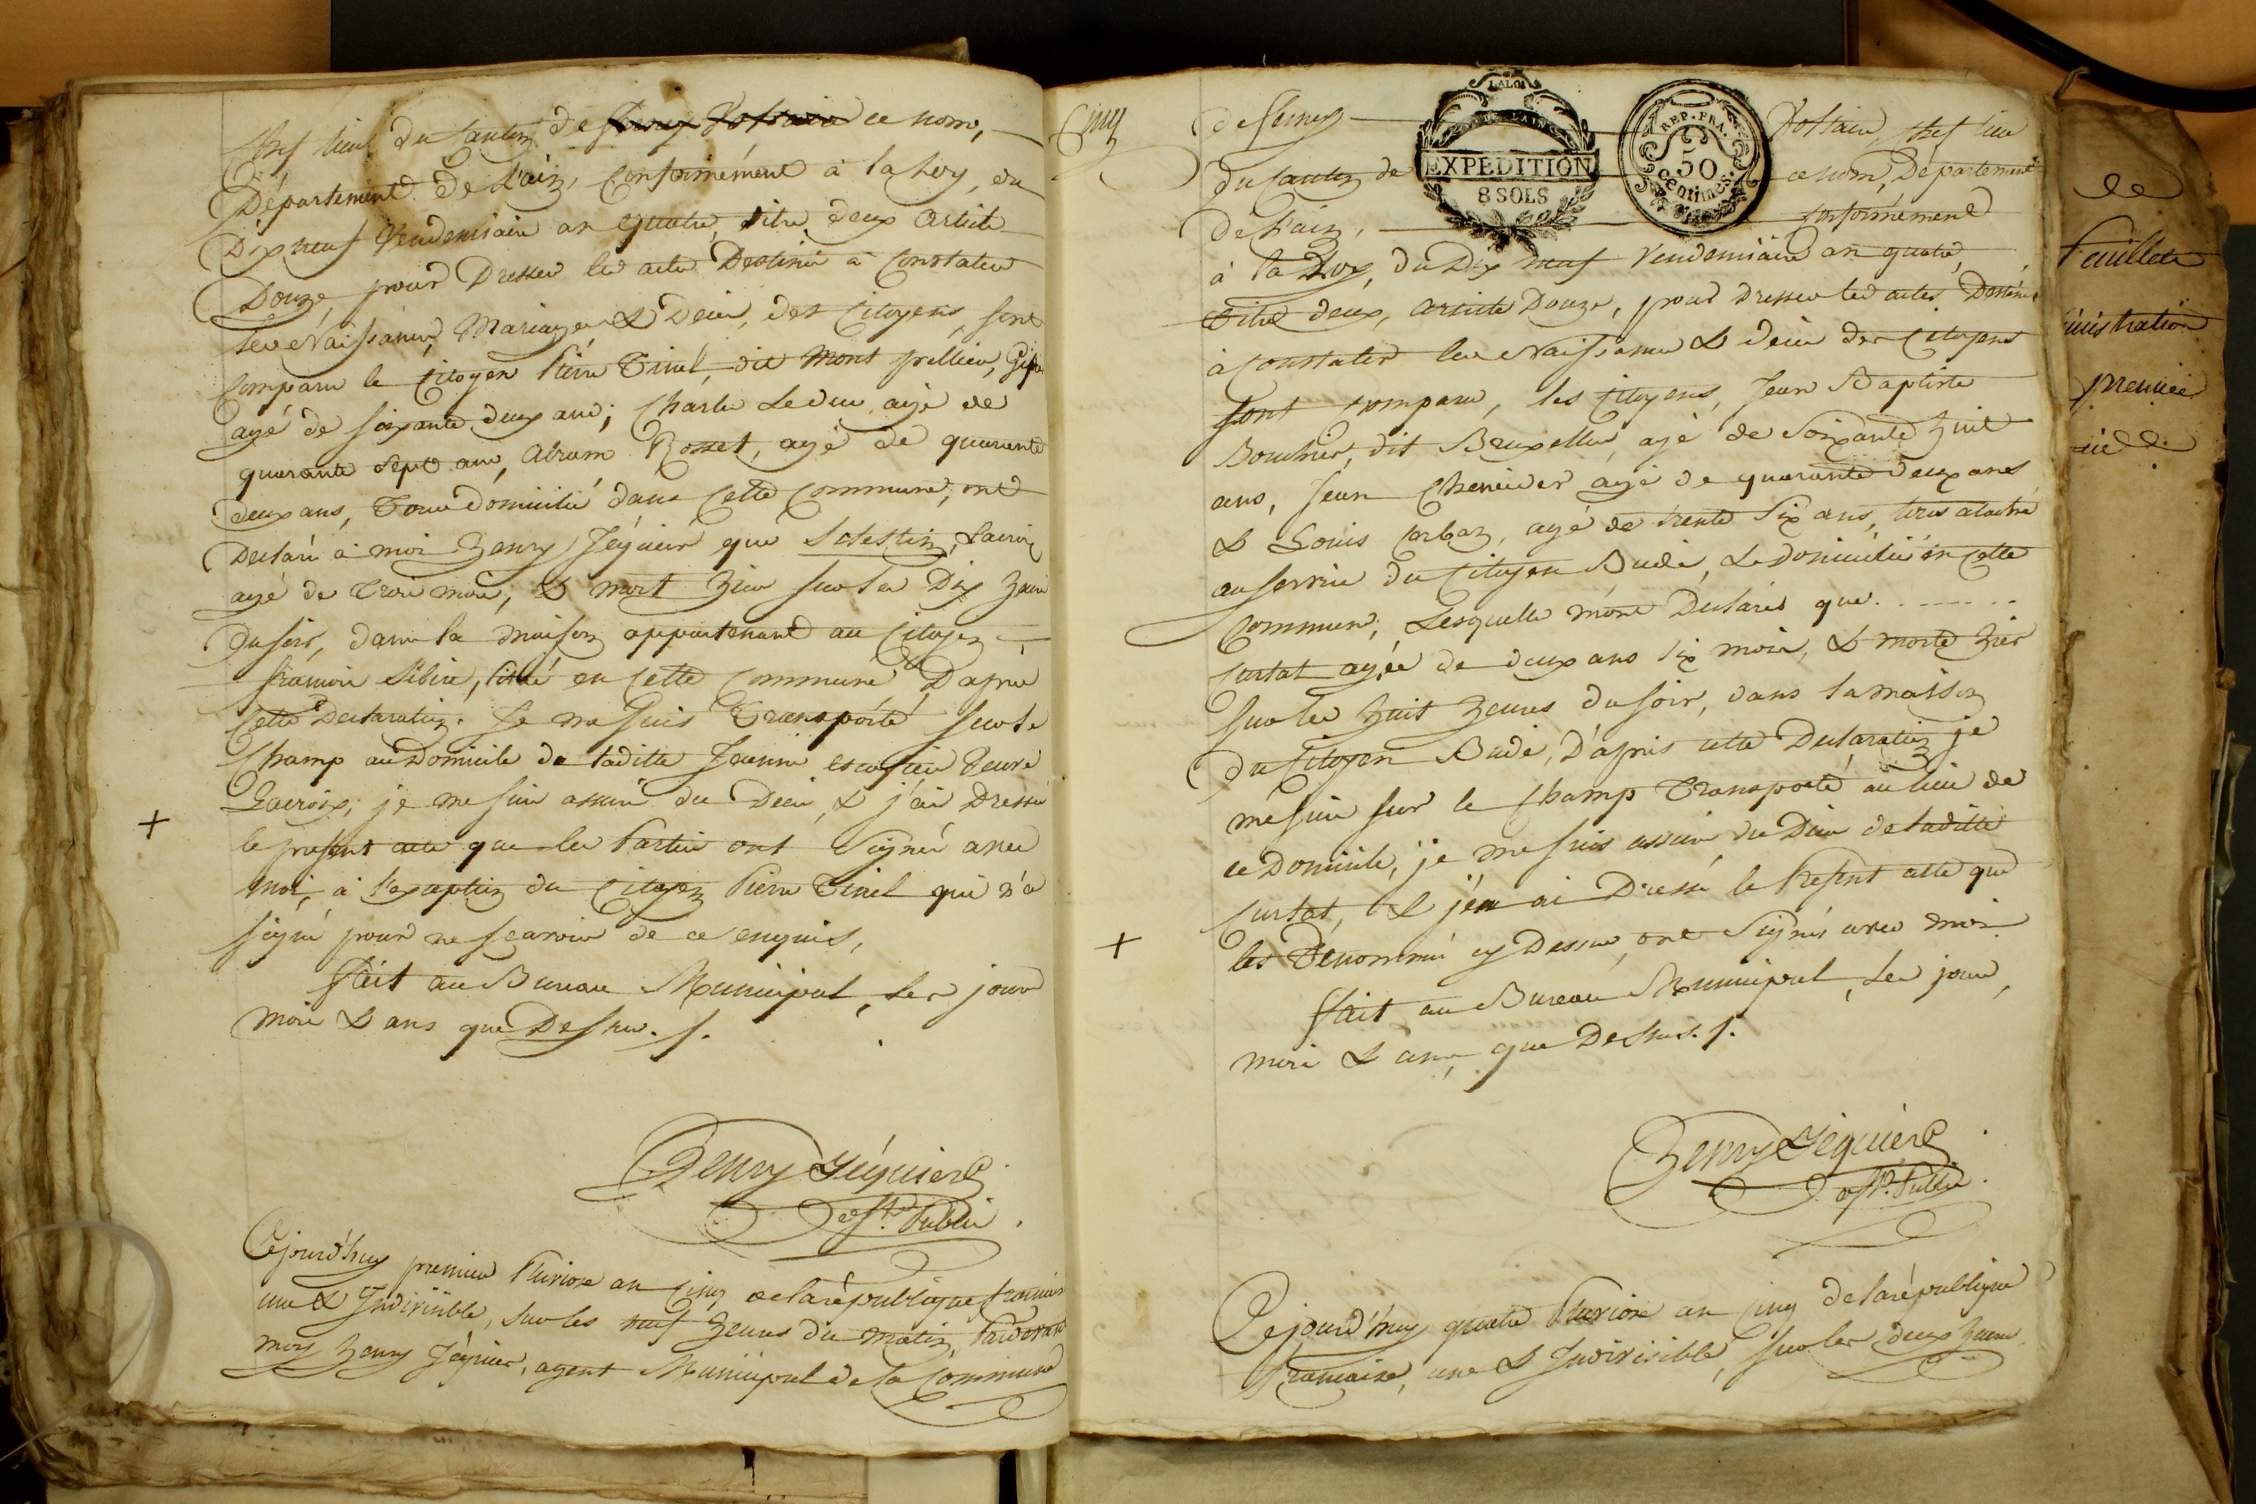 Chef lieu du Canton de Ferney Voltaire ce nom,
Département De L'ain, Conformément à la Loy, du
Dix neuf Vendemiaire an quatre, titre deux article
Douze, pour Dresser les actes Destinés à Constater
les Naissances, Mariages & Décés, des Citoyens, sont
Comparu le Citoyen Pierre Tinel, dit Mont pellier,
agé de soixante deux ans; Charles Leduc, agé de
quarante sept ans, Abram Rosset, agé de quarante
deux ans, Tous domicilié dans Cette Commune, ont
Declaré à moi Henry Jéquier que Selestin, Lacroix
agé de Trois mois, & mort hier sur les Dix heures
Du soir, dans la maison appartenant au Citoyen
francois en Cette Commune, D'après
Cette Declaration. Je me suis Transporté sur le
Champ au Domicile de laditte Jeanne veuve
Lacroix, je me suis assuré du Décés, & j'ai Dressé
le present acte que les Parties ont Signés avec
moi, à l'exception du Citoyen Pierre Tinel qui n'a
signé pour ne scavoir de ce enquis,
fait au Bureau Municipal, les jour
mois & ans que Dessus. /.
Henry Jéquier
off. Public
Cejourd'huy premier Pluviose an Cinq de la république francaise
une & Indivisible, sur les neuf heures du matin, Pardevant
moy Henry Jéquier, agent Municipal de la Commune
Cinq
de ferney Voltaire, chef lieu
LALO
EXPEDITION
8 SOLS
REP. FRA.
50
Centimes.
du Canton de ce nom, Département
De L'ain, Conformément
à la Loy, du Dix neuf Vendemiaire an quatre,
titre deux, article Douze, pour dresser les actes Destinés
à Constater les Naissances & décés des Citoyens
sont Comparu, les Citoyens, Jean Baptiste
Bouchier, dit Bruxelles, agé de Soixante huit
ans, Jean Cheneider agé de quarante deux ans
& Louis Corboz, agé de trente Six ans, tous attaché
au service du Citoyen Budé, & Domicilié en Cette
Commune, Lesquelles m'ont Declarés que .......
Curtat agée de deux ans six mois, & morte hier
sur les huit heures du soir, dans la maison
Du Citoyen Budé, D'après cette Declaration je
me suis sur le Champ Transporté au lieu de
ce Domicile, je me suis assuré du Décés de laditte
Curtat, & j'en ai Dressé le Present acte que
les Denommés cy Dessus, ont Signés avec moi
fait au Bureau Municipal, les jour,
mois & ans, que Dessus. /.
Henry Jéquier
off. Public
Cejourd'huy quatre Pluviose an Cinq de la république
francaise, une & Indivisible, sur les deux heures
Feuillets
premier